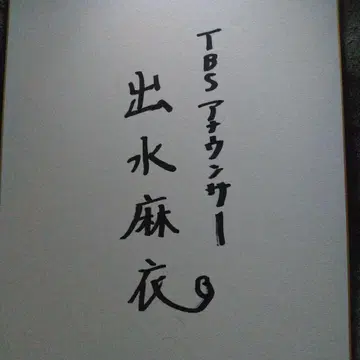 TBSアナウンサー
出水麻衣